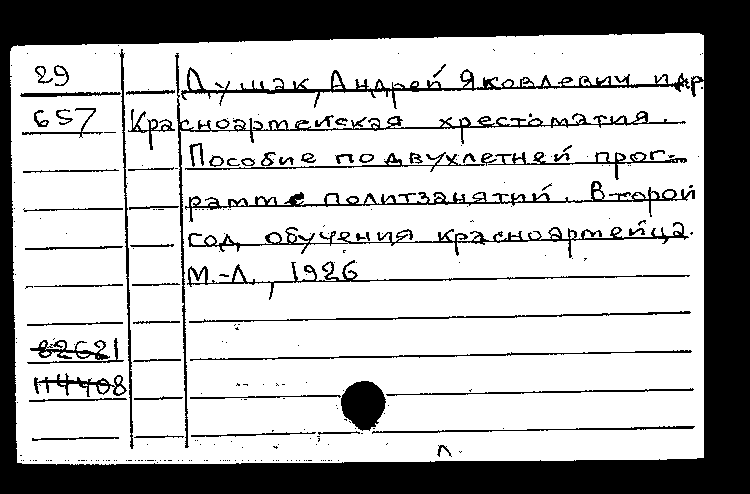 29 Душак, Андрей Яковлевич и др.
657 Красноармейская хрестоматия.
Пособие по двухлетней прог-
рамме политзанятий. Второй
год обучения красноармейца.
М.-Л., 1926
82621
114408
л.